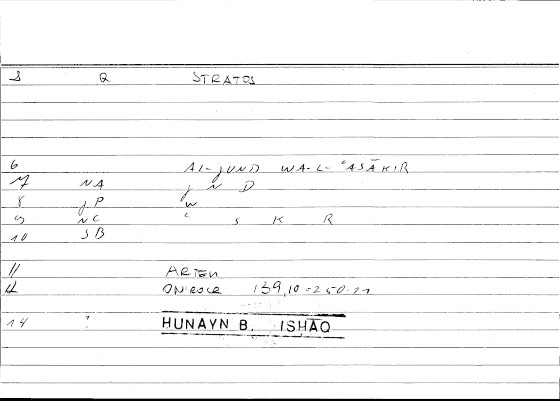 Q STRATOS
6 AL-JUND WA-L-ʿASĀKIR
7 NA J N D
8 JP W
9 NC ʿ S K R
10 SB
11 ARTEM
ONIROCR 139,10 = 250.21
14 ? HUNAYN B. ISHĀQ